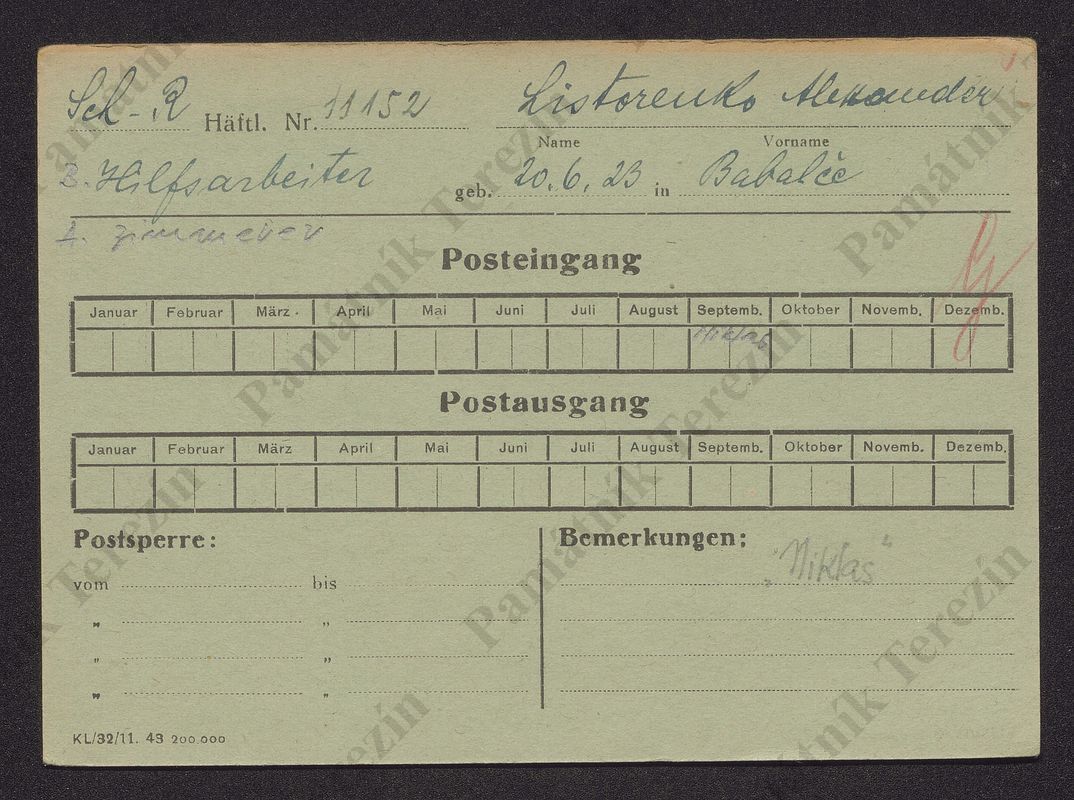 Sch - R Häftl. Nr. 11152 Listorenko Alexander
Name Vorname
B. Hilfsarbeiter geb. 20.6.23 in Babalče
A. Zimmerer
Posteingang
Januar Februar März. April Mai Juni Juli August Septemb. Oktober Novemb. Dezemb.
Niklas
Postausgang
Januar Februar März April Mai Juni Juli August Septemb. Oktober Novemb. Dezemb.
Postsperre: Bemerkungen:
vom bis „Niklas“
„ „
„ „
„ „
KL/32/11. 43 200.000
Památník Terezín